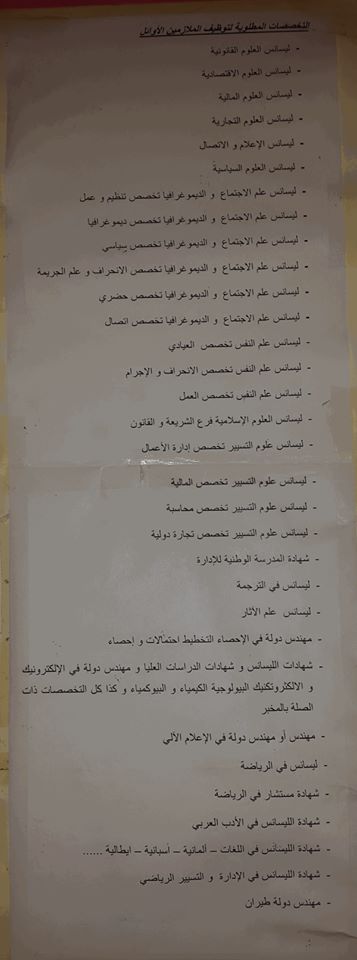 التخصصات المطلوبة لتوظيف الملازمين الأوائل
- ليسانس العلوم القانونية
- ليسانس العلوم الاقتصادية
- ليسانس العلوم المالية
- ليسانس العلوم التجارية
- ليسانس الإعلام و الاتصال
- ليسانس العلوم السياسية
- ليسانس علم الاجتماع و الديموغرافيا تخصص تنظيم و عمل
- ليسانس علم الاجتماع و الديموغرافيا تخصص ديموغرافيا
- ليسانس علم الاجتماع و الديموغرافيا تخصص سياسي
- ليسانس علم الاجتماع و الديموغرافيا تخصص الانحراف و علم الجريمة
- ليسانس علم الاجتماع و الديموغرافيا تخصص حضري
- ليسانس علم الاجتماع و الديموغرافيا تخصص اتصال
- ليسانس علم النفس تخصص العيادي
- ليسانس علم النفس تخصص الانحراف و الإجرام
- ليسانس علم النفس تخصص العمل
- ليسانس العلوم الإسلامية فرع الشريعة و القانون
- ليسانس علوم التسيير تخصص إدارة الأعمال
- ليسانس علوم التسيير تخصص المالية
- ليسانس علوم التسيير تخصص محاسبة
- ليسانس علوم التسيير تخصص تجارة دولية
- شهادة المدرسة الوطنية للإدارة
- ليسانس في الترجمة
- ليسانس علم الأثار
- مهندس دولة في الإحصاء التخطيط احتمالات و إحصاء
- شهادات الليسانس و شهادات الدراسات العليا و مهندس دولة في الإلكترونيك
و الالكتروتكنيك البيولوجية الكيمياء و البيوكمياء و كذا كل التخصصات ذات
الصلة بالمخبر
- مهندس أو مهندس دولة في الإعلام الألي
- ليسانس في الرياضة
- شهادة مستشار في الرياضة
- شهادة الليسانس في الأدب العربي
- شهادة الليسانس في اللغات – ألمانية – أسبانية – ايطالية ......
- شهادة الليسانس في الإدارة و التسيير الرياضي
- مهندس دولة طيران